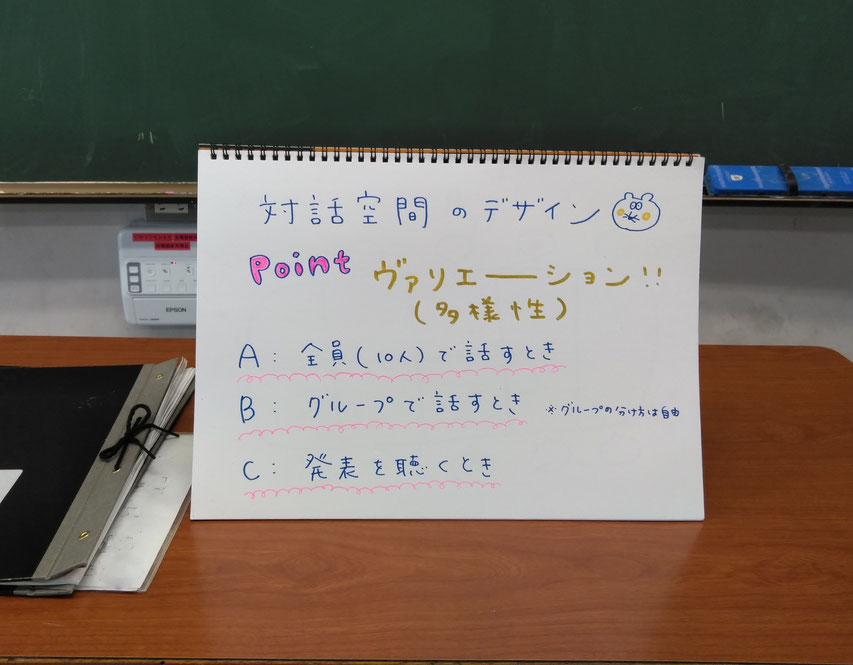 対話空間のデザイン
Point
ヴァリエーション!!
(多様性)
A: 全員(10人)で話すとき
B: グループで話すとき ※グループの分け方は自由
C: 発表を聴くとき
EPSON